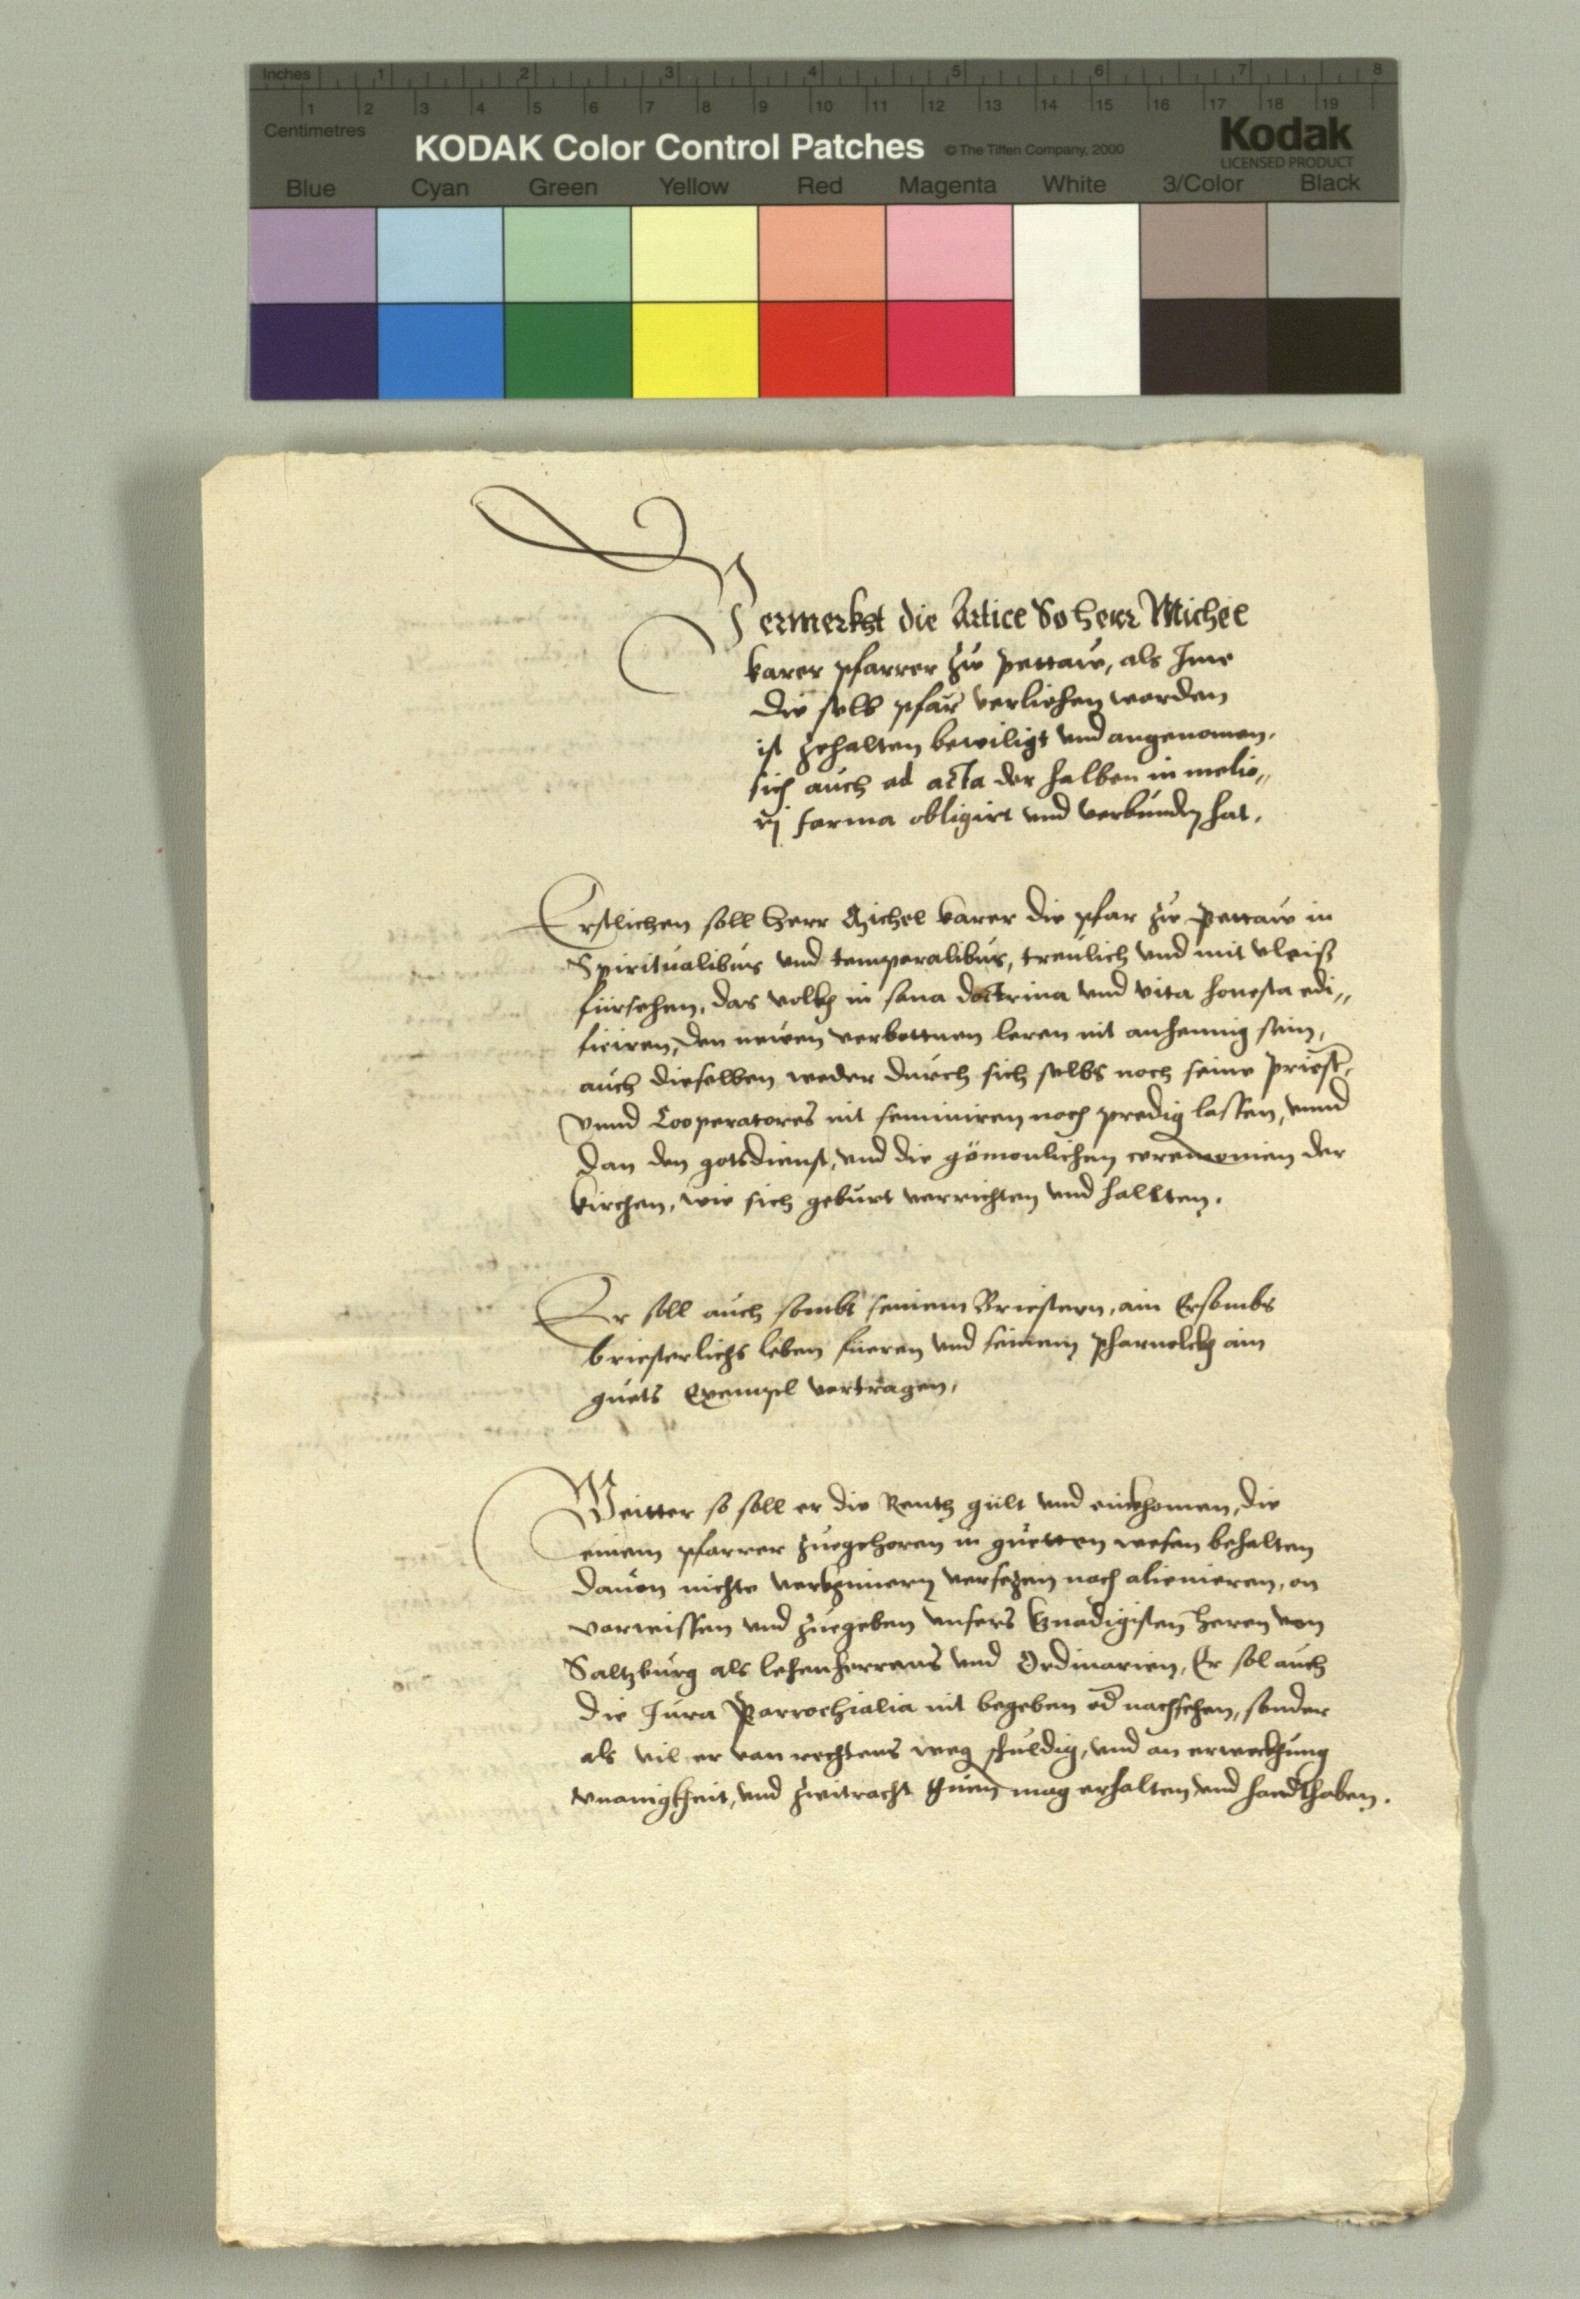 Inches 1 2 3 4 5 6 7 8
1 2 3 4 5 6 7 8 9 10 11 12 13 14 15 16 17 18 19
Centimetres
KODAK Color Control Patches © The Tiffen Company, 2000 Kodak
LICENSED PRODUCT
Blue Cyan Green Yellow Red Magenta White 3/Color Black
Vermerkht die Articl So herr Michel
karer pfarrer zw pettaw, als Ime
die selb pfar verliehen worden
ist zehalten bewiligt vnd angenomen,
sich auch ad acta der halben in melio„
rj forma obligirt vnd verbunden hat,
Erstlichen soll herr Michel karer die pfar zw pettaw in
Spiritualibus vnd temporalibus, treulich vnd mit vleiß
fürsehen, das volkh in sana doctrina vnd vita honesta edi„
ficiren, den newen verbottnen leren nit anhenig sein,
auch dieselben weder durch sich selbs noch seine priest,
vnnd Cooperatores nit seminiren noch predig lassen, vnnd
dan den gotsdienst, vnd die gömonlichen ceremonien der
kirchen, wie sich geburt verrichten vnd hallten.
Er soll auch sambt seinem Briestern, ain Ersambs
briesterlichs leben füeren vnd seinem pharuolckh ain
guets Exempl vortragen,
Weitter so soll er die Renth gült vnd einkhomen, die
einem pfarrer zuegehoren in guetten wesen behalten
dauon nichts verkhümern versezen noch alienieren, on
vorwissen vnd zuegeben vnsers Gnadigisten herren von
Saltzburg als lehenherrens vnd Ordinarien, Er sol auch
die Jura Parrochialia nit begeben od nachsehen, sonder
als vil er von rechtens weg schuldig, vnd an erweckhung
vnainigkheit, vnd zwitracht thuen mag erhalten vnd handthaben.